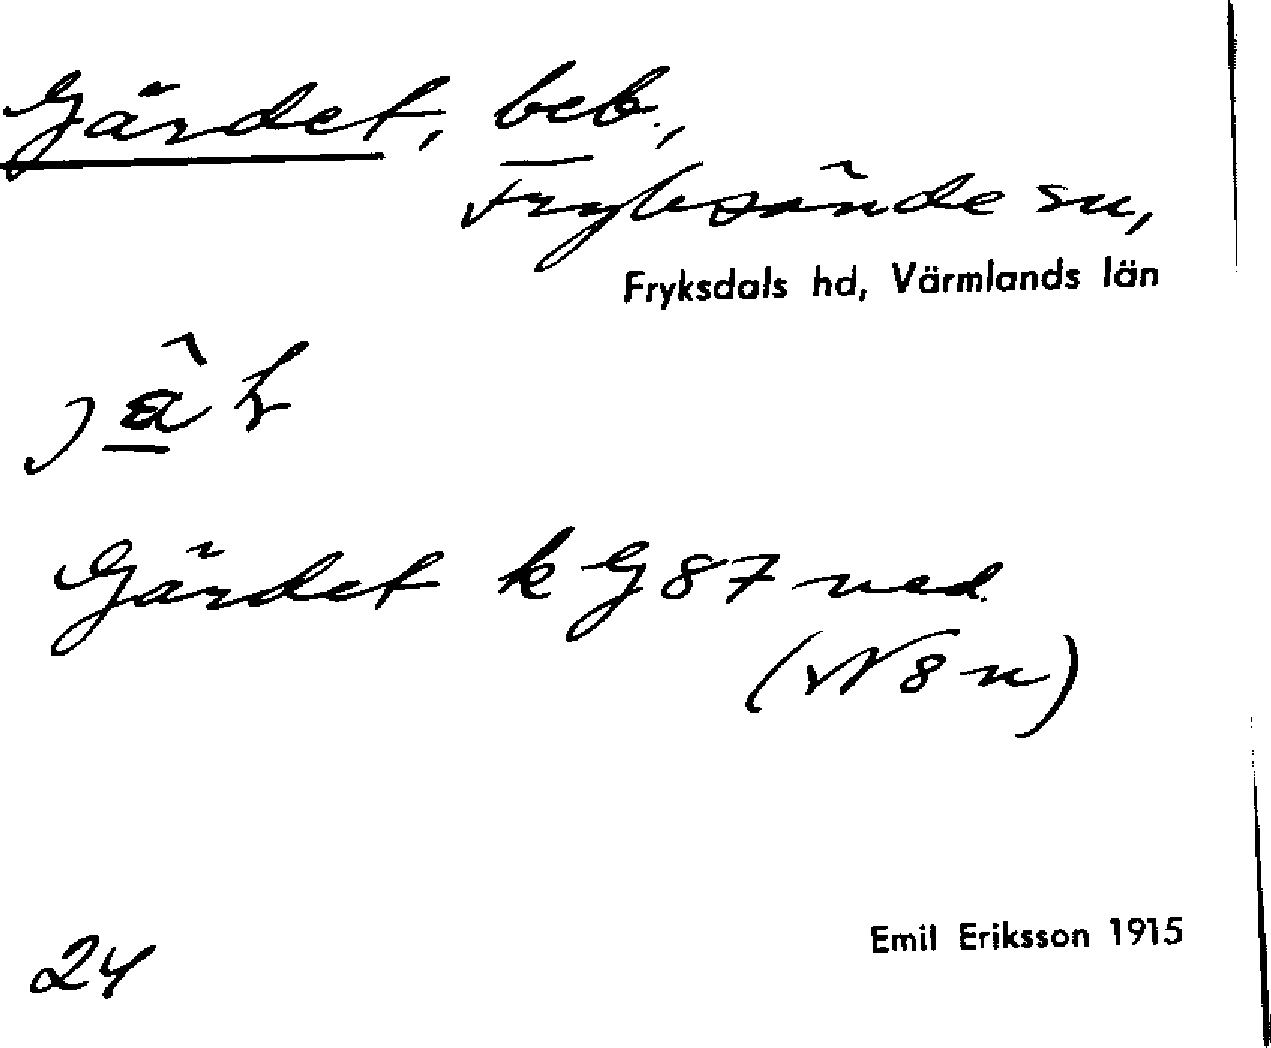 Gärdet, beb.,
Fryksände sn,
Fryksdals hd, Värmlands län
Gärdet k G 87 ned.
(N 8 n)
Emil Eriksson 1915
24